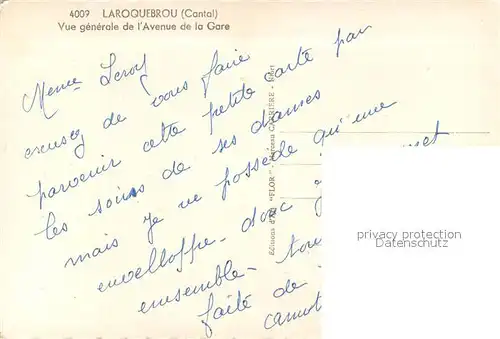 4009 LAROQUEBROU (Cantal)
Vue générale de l'Avenue de la Gare
Meme Leroy
excusez de vous faire
parvenir cette petite carte par
les soins de ses dames
mais je ne possede qu'une
envelloppe - donc
ensemble - tou
faite de
Editions d'Art "FLOR" -
privacy protection
Datenschutz